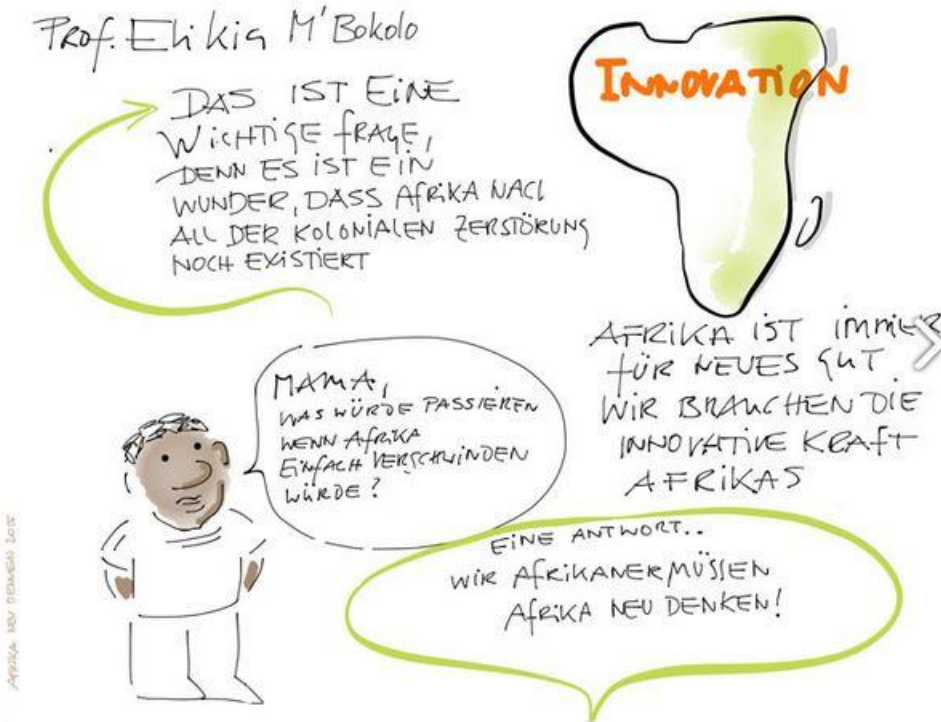 Prof. Elikia M'Bokolo
DAS IST EINE
WICHTIGE FRAGE,
DENN ES IST EIN
WUNDER, DASS AFRIKA NACH
ALL DER KOLONIALEN ZERSTÖRUNG
NOCH EXISTIERT
INNOVATION
AFRIKA IST IMMER
FÜR NEUES GUT
WIR BRAUCHEN DIE
INNOVATIVE KRAFT
AFRIKAS
MAMA,
WAS WÜRDE PASSIEREN
WENN AFRIKA
EINFACH VERSCHWINDEN
WÜRDE?
EINE ANTWORT..
WIR AFRIKANER MÜSSEN
AFRIKA NEU DENKEN!
AFRIKA NEU DENKEN 2015